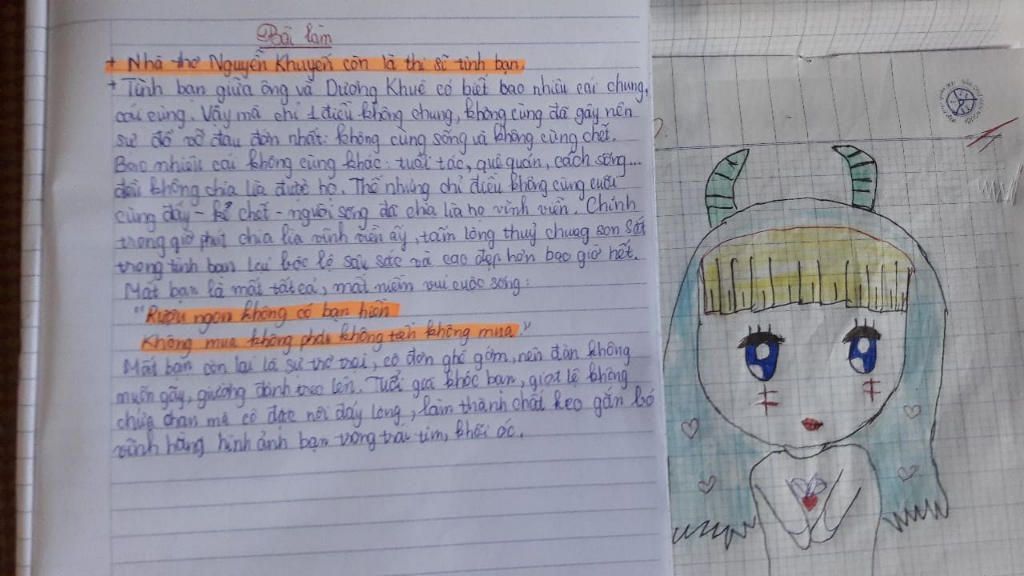 Bài làm
+ Nhà thơ Nguyễn Khuyến còn là thi sĩ tình bạn
+ Tình bạn giữa ông và Dương Khuê có biết bao nhiêu cái chung,
cái cùng. Vậy mà chỉ 1 điều không chung, không cùng đã gây nên
sự đổ vỡ đau đớn nhất: không cùng sống và không cùng chết.
Bao nhiêu cái không cùng khác: tuổi tác, quê quán, cách sống...
đều không chia lìa được họ. Thế nhưng chỉ điều không cùng cuối
cùng đấy - kẻ chết - người sống đã chia lìa họ vĩnh viễn. Chính
trong giờ phút chia lìa vĩnh viễn ấy, tấm lòng thuỷ chung son sắt
trong tình bạn lại bộc lộ sâu sắc và cao đẹp hơn bao giờ hết.
Mất bạn là mất tất cả, mất niềm vui cuộc sống:
"Rượu ngon không có bạn hiền
Không mua không phải không tiền không mua."
Mất bạn còn lại là sự trơ trọi, cô đơn ghê gớm, nên đàn không
muốn gẩy, giường đành treo lên. Tuổi già khóc bạn, giọt lệ không
chứa chan mà cô đặc nơi đáy lòng, làm thành chất keo gắn bó
vĩnh hằng hình ảnh bạn trong trái tim, khối óc.